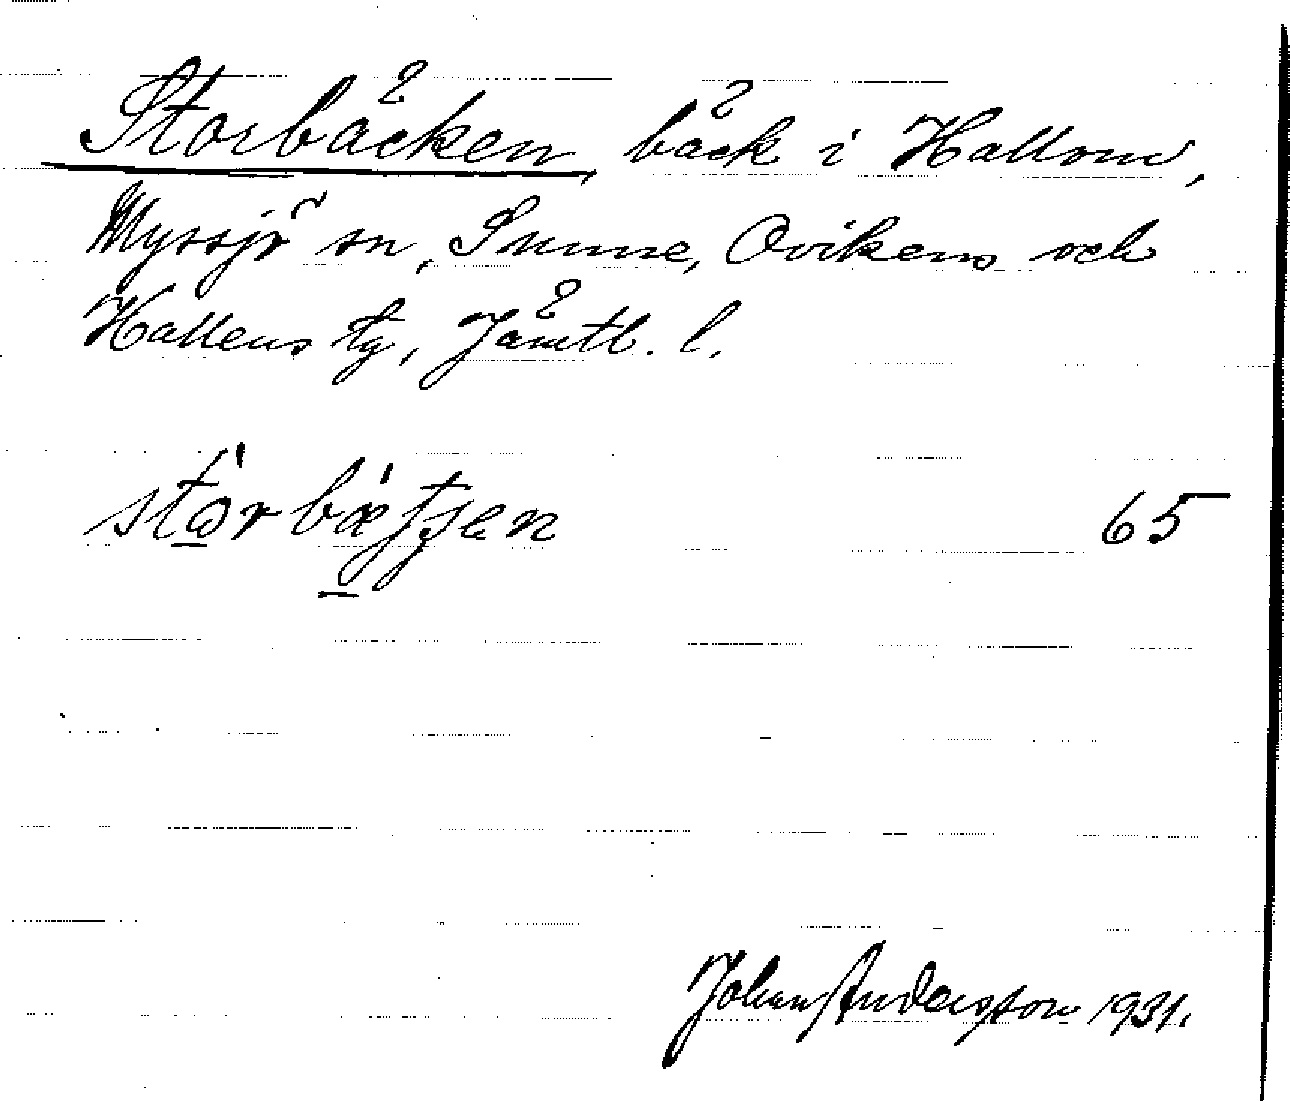 Storbäcken, bäck i Hallom,
Myssjö sn, Sunne, Ovikens och
Hallens tg, Jämtl. l.
65
Johan Andersson 1931.